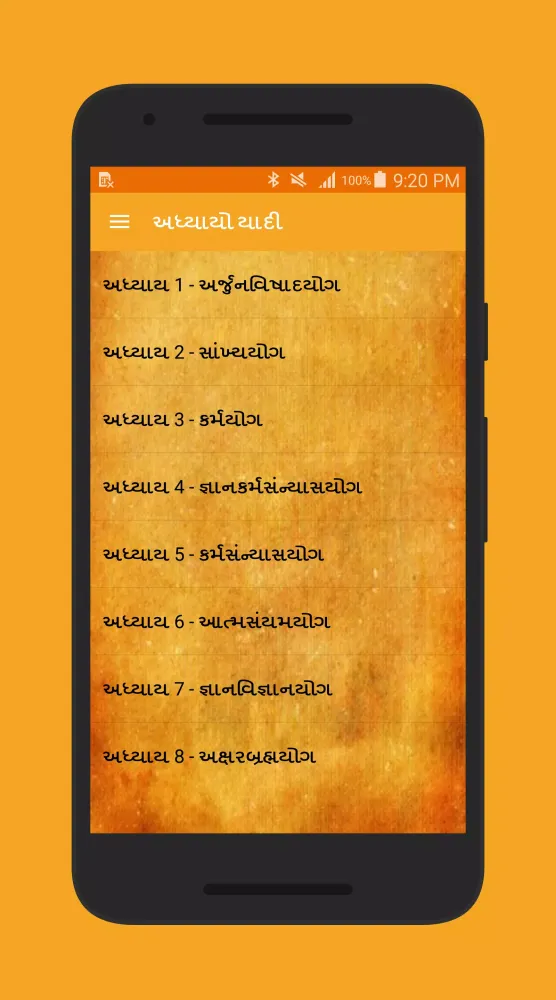 100% 9:20 PM
અધ્યાયો યાદી
અધ્યાય 1 - અર્જુનવિષાદયોગ
અધ્યાય 2 - સાંખ્યયોગ
અધ્યાય 3 - કર્મયોગ
અધ્યાય 4 - જ્ઞાનકર્મસંન્યાસયોગ
અધ્યાય 5 - કર્મસંન્યાસયોગ
અધ્યાય 6 - આત્મસંયમયોગ
અધ્યાય 7 - જ્ઞાનવિજ્ઞાનયોગ
અધ્યાય 8 - અક્ષરબ્રહ્મયોગ